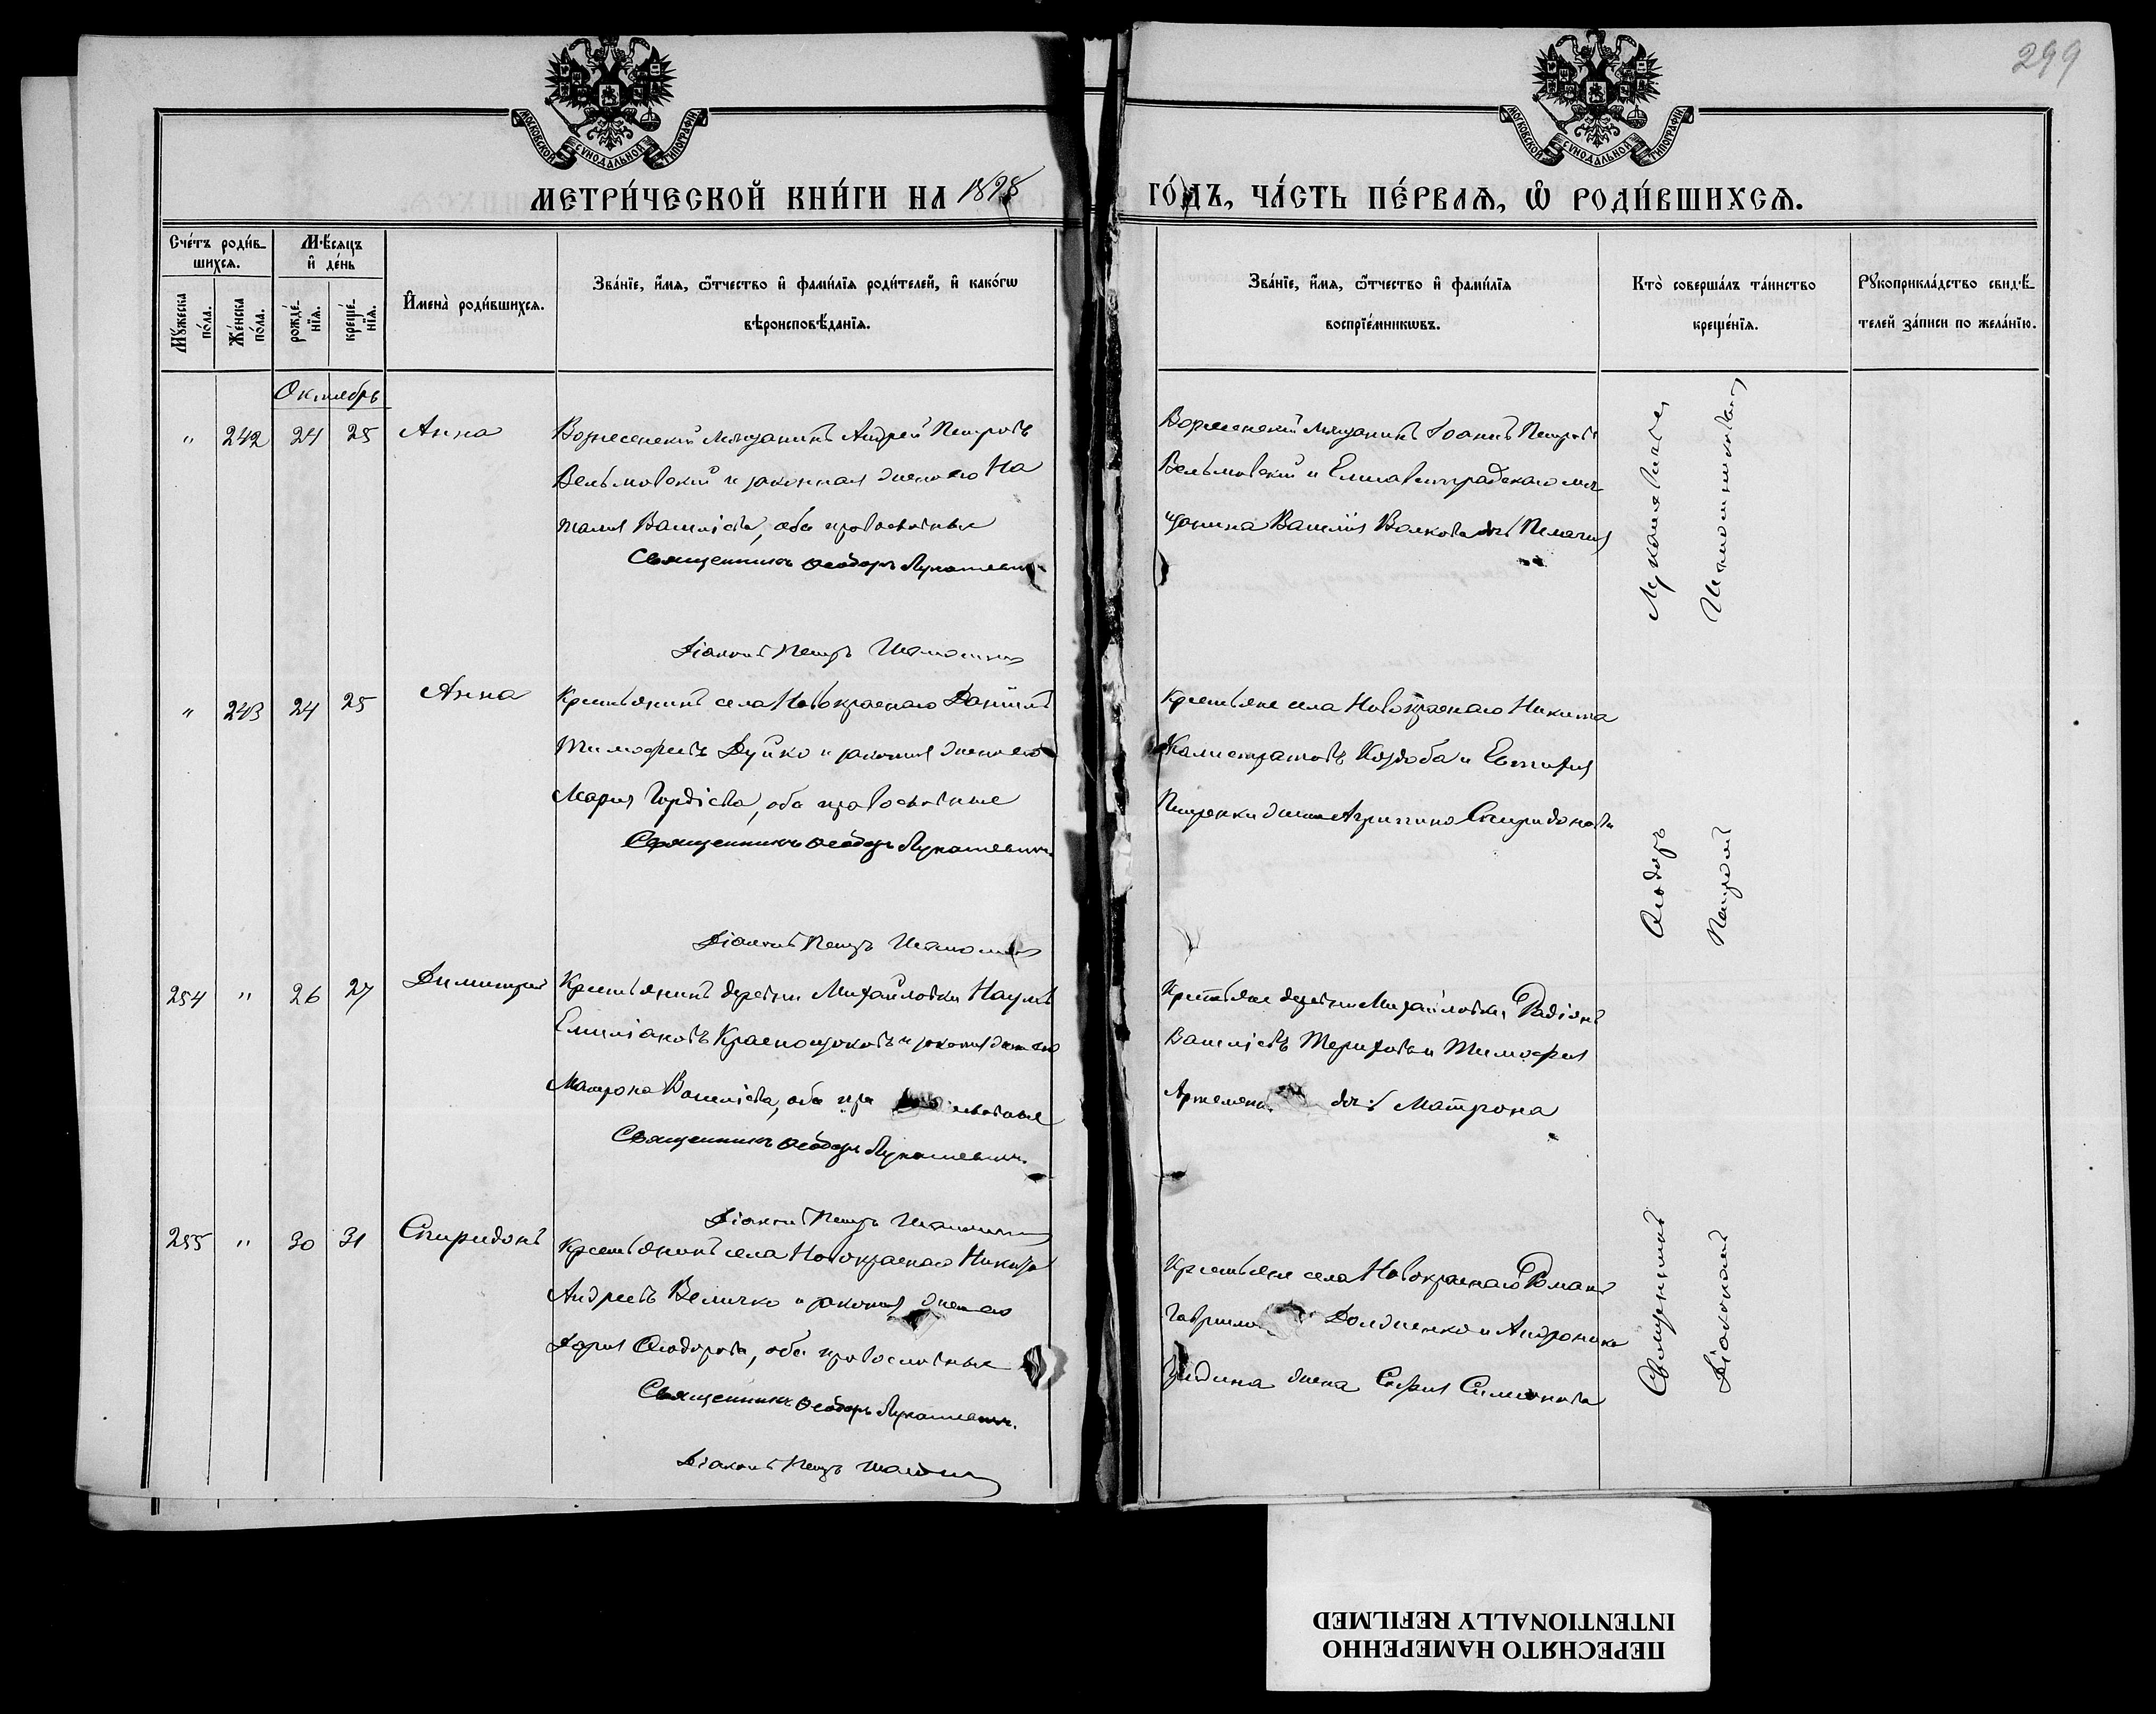 299
МОСКОВСКОЙ СУНОДАЛЬНОЙ ТИПОГРАФІИ
МОСКОВСКОЙ СУНОДАЛЬНОЙ ТИПОГРАФІИ
МЕТРИ́ЧЕСКОЙ КНИ́ГИ НА 1898
ГО́ДЪ, ЧА́СТЬ ПЕ́РВАѦ, Ѡ҆ РОДИ́ВШИХСѦ.
Сче́тъ роди́в-
шихсѧ.
Мꙋ́жеска
по́ла.
Же́нска
по́ла.
Мѣ́сѧцъ
и҆ де́нь
рожде́-
нїѧ.
креще́-
нїѧ.
И҆мена̀ роди́вшихсѧ.
Зва́нїе, и҆́мѧ, ѻ҆́тчество и҆ фами́лїѧ роди́телей, и҆ како́гѡ
вѣроисповѣ́данїѧ.
Зва́нїе, и҆́мѧ, ѻ҆́тчество и҆ фами́лїѧ
воспрїе́мникѡвъ.
Кто̀ соверша́лъ та́инство
креще́нїѧ.
Рꙋкоприкла́дство свидѣ́-
телей за́писи по жела́нїю.
Октябрь
" 242 24 25 Анна
Вознесенскій мѣщанинъ Андрей Петровъ
Вельмовскій и законная жена его На
талія Василіева, оба православные
Священникъ Ѳеодоръ Лукашевичъ
Діаконъ Петръ
Вознесенскій мѣщанинъ Іоаннъ Петровъ
Вельмовскій и Елисаветградскаго мѣ
щанина Василія Волкова дчь Пелагія
" 243 24 25 Анна
Крестьянинъ села Новокраснаго Даніилъ
Тимофеевъ Дуйко и законная жена его
Марія Гордіева, оба православные
Священникъ Ѳеодоръ Лукашевичъ
Діаконъ Петръ
Крестьяне села Новокраснаго Никита
Калистратовъ Коздоба и Евтихія
Петренки жена Агриппина Спиридонова
254 " 26 27 Димитрій
Крестьянинъ деревни Михайловки Наумъ
Емиліановъ Краснощоковъ и законная жена его
Матрона Василіева, оба православные
Священникъ Ѳеодоръ Лукашевичъ.
Діаконъ Петръ
Крестьяне деревни Михайловки Радіонъ
Василіевъ Терихова и Тимофея
дчь Матрона
255 " 30 31 Спиридонъ
Крестьянинъ села Новокраснаго Никифоръ
Андреевъ Величко и законная жена его
Дарія Ѳеодорова, оба православные
Священникъ Ѳеодоръ Лукашевичъ.
Діаконъ Петръ
Крестьяне села Новокраснаго Романъ
Долженко и Андроника
жена Софія Симонова
Священникъ Ѳеодоръ Лукашевичъ
Діаконъ Петръ
ПЕРЕСНЯТО НАМЕРЕННО
INTENTIONALLY REFILMED